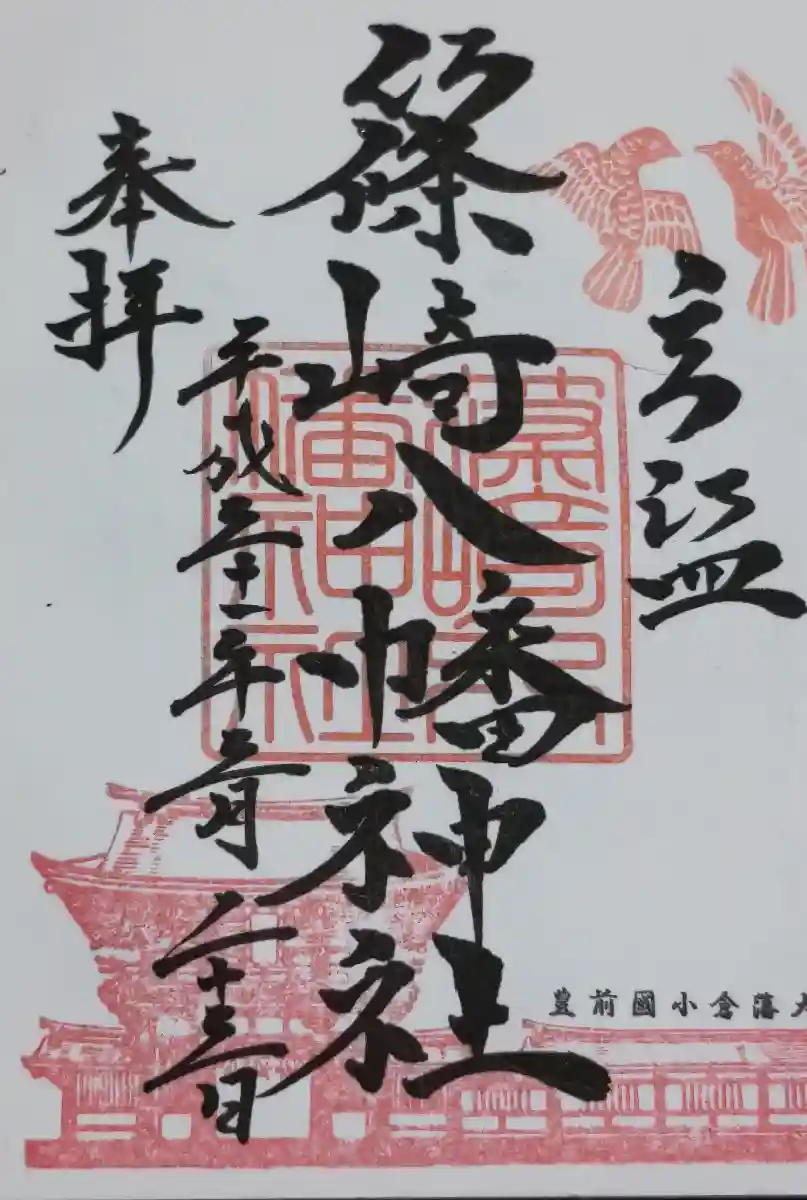 篠崎八幡神社
平成三十一年三月二十三日
奉拝
篠崎八
幡神社
豊前國小倉藩